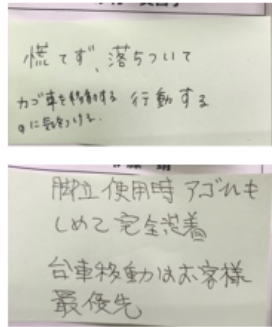 慌てず、落ちついて
カゴ車を移動する 行動する
のに気をつける。
脚立使用時アゴひも
しめて完全装着
台車移動はお客様
最優先